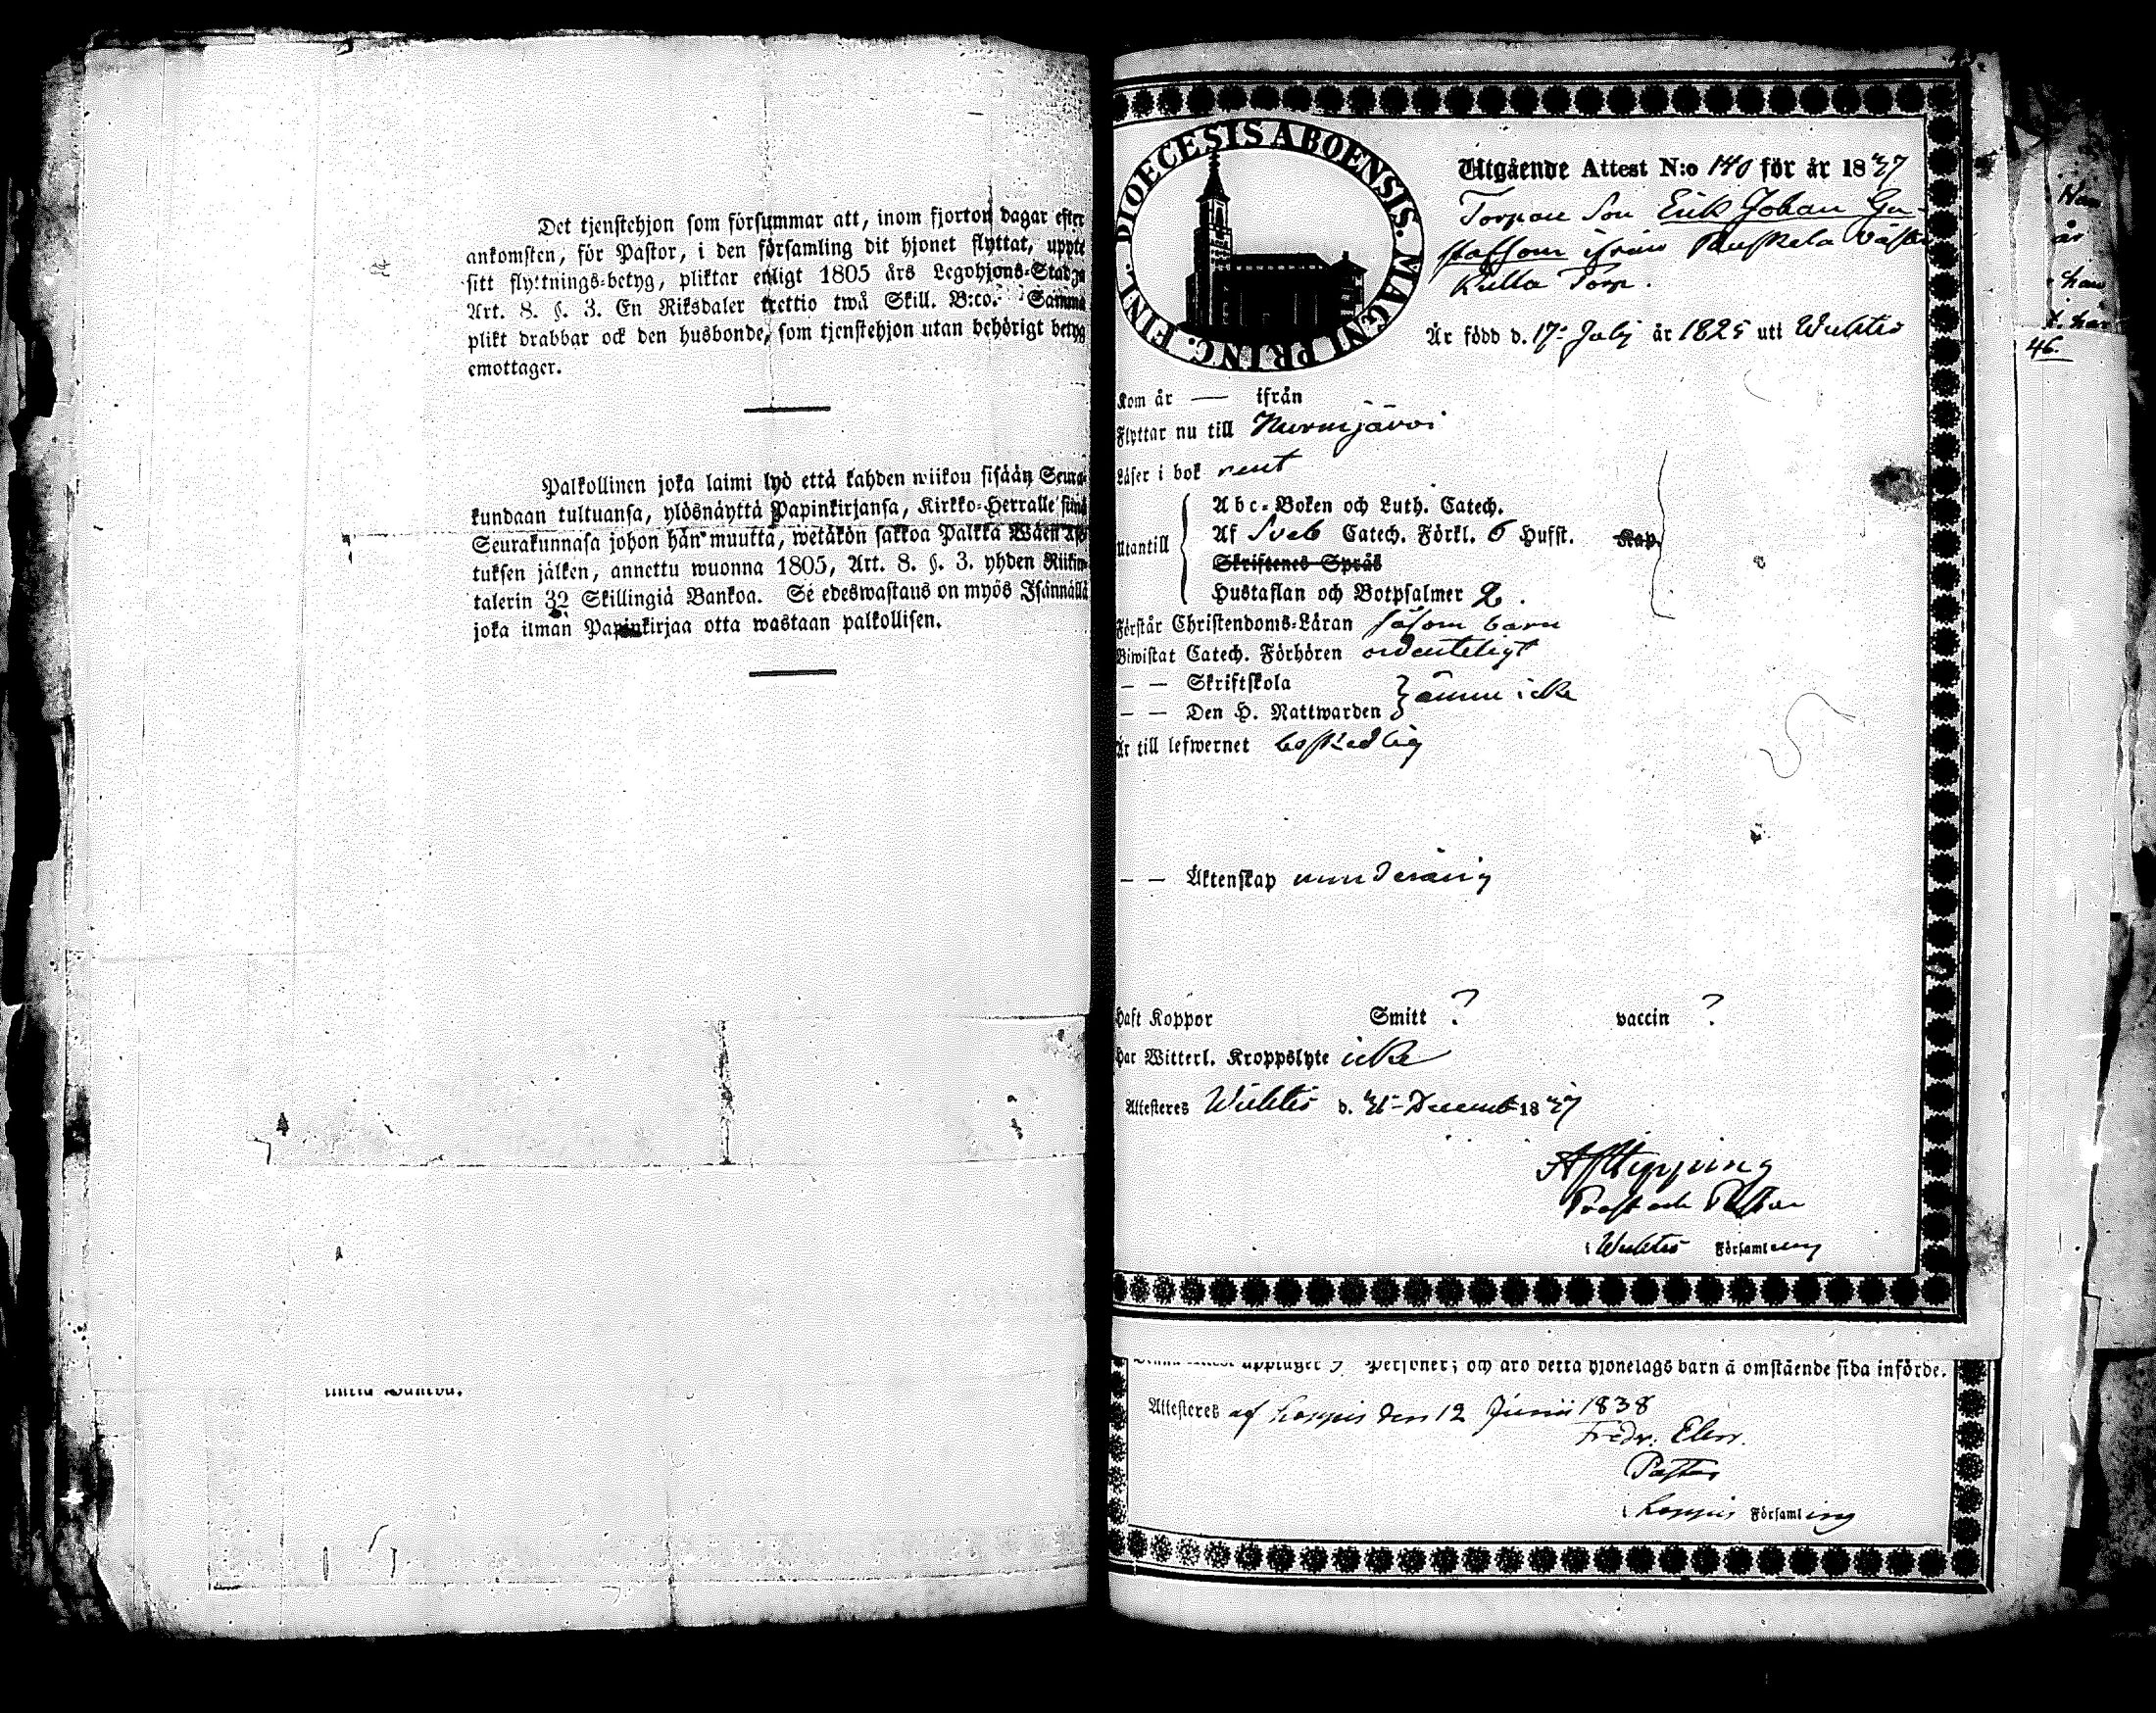 Det tjenstehjon som försummar att, inom fjorton dagar efter
ankomsten, för Pastor, i den församling dit hjonet flyttat, uppte
sitt flyttnings-betyg, pliktar enligt 1805 års Legohjons-Stadga
Art. 8. §. 3. En Riksdaler trettio twå Skill. B:co. Samma
plikt drabbar ock den husbonde, som tjenstehjon utan behörigt betyg
emottager.
Palkollinen joka laimi lyö että kahden wiikon sisään Seura-
kundaan tultuansa, ylösnäyttä Papinkirjansa, Kirkko-Herralle siinä
Seurakunnasa johon hän muutta, wetäkön sakkoa Palkka Wäen Ase-
tuksen jälken, annettu wuonna 1805, Art. 8. §. 3. yhden Riikin-
talerin 32 Skillingiä Bankoa. Se edeswastaus on myös Isännällä
joka ilman Papinkirjaa otta wastaan palkollisen.
DIOECESIS ABOENSIS. MAGNI PRINC. FINL.
Utgående Attest N:o 140 för år 1837
Torpare Son Erik Johan Gu-
stafsson ifrån Västen
Kulla Torp.
Är född d. 17: Julj år 1825 uti Wichtis
Kom år — ifrån
Flyttar nu till Nurmijärvi
Läser i bok rent
Utantill
Abc-Boken och Luth. Catech.
Af Sveb Catech. Förkl. 6 Hufst. Kap.
Skriftenes Språk
Hustaflan och Botpsalmer 2.
Förstår Christendoms-Läran såsom barn
Biwistat Catech. Förhören ordenteligt
— — Skriftskola
— — Den H. Nattwarden } ännu icke
Är till lefwernet beskedlig
— — Äktenskap minderårig
Haft Koppor Smitt ? vaccin ?
Har Witterl. Kroppslyte icke
Attesteres Wichtis d. 31 Decemb 1837
Prost och Pastor
i Wichtis Församling
upptager Personer; och äro detta hjonelags barn å omstående sida införde.
Attesteres af Loppis den 12 Junii 1838
Fredr.
Pastor
i Loppis Församling
46.